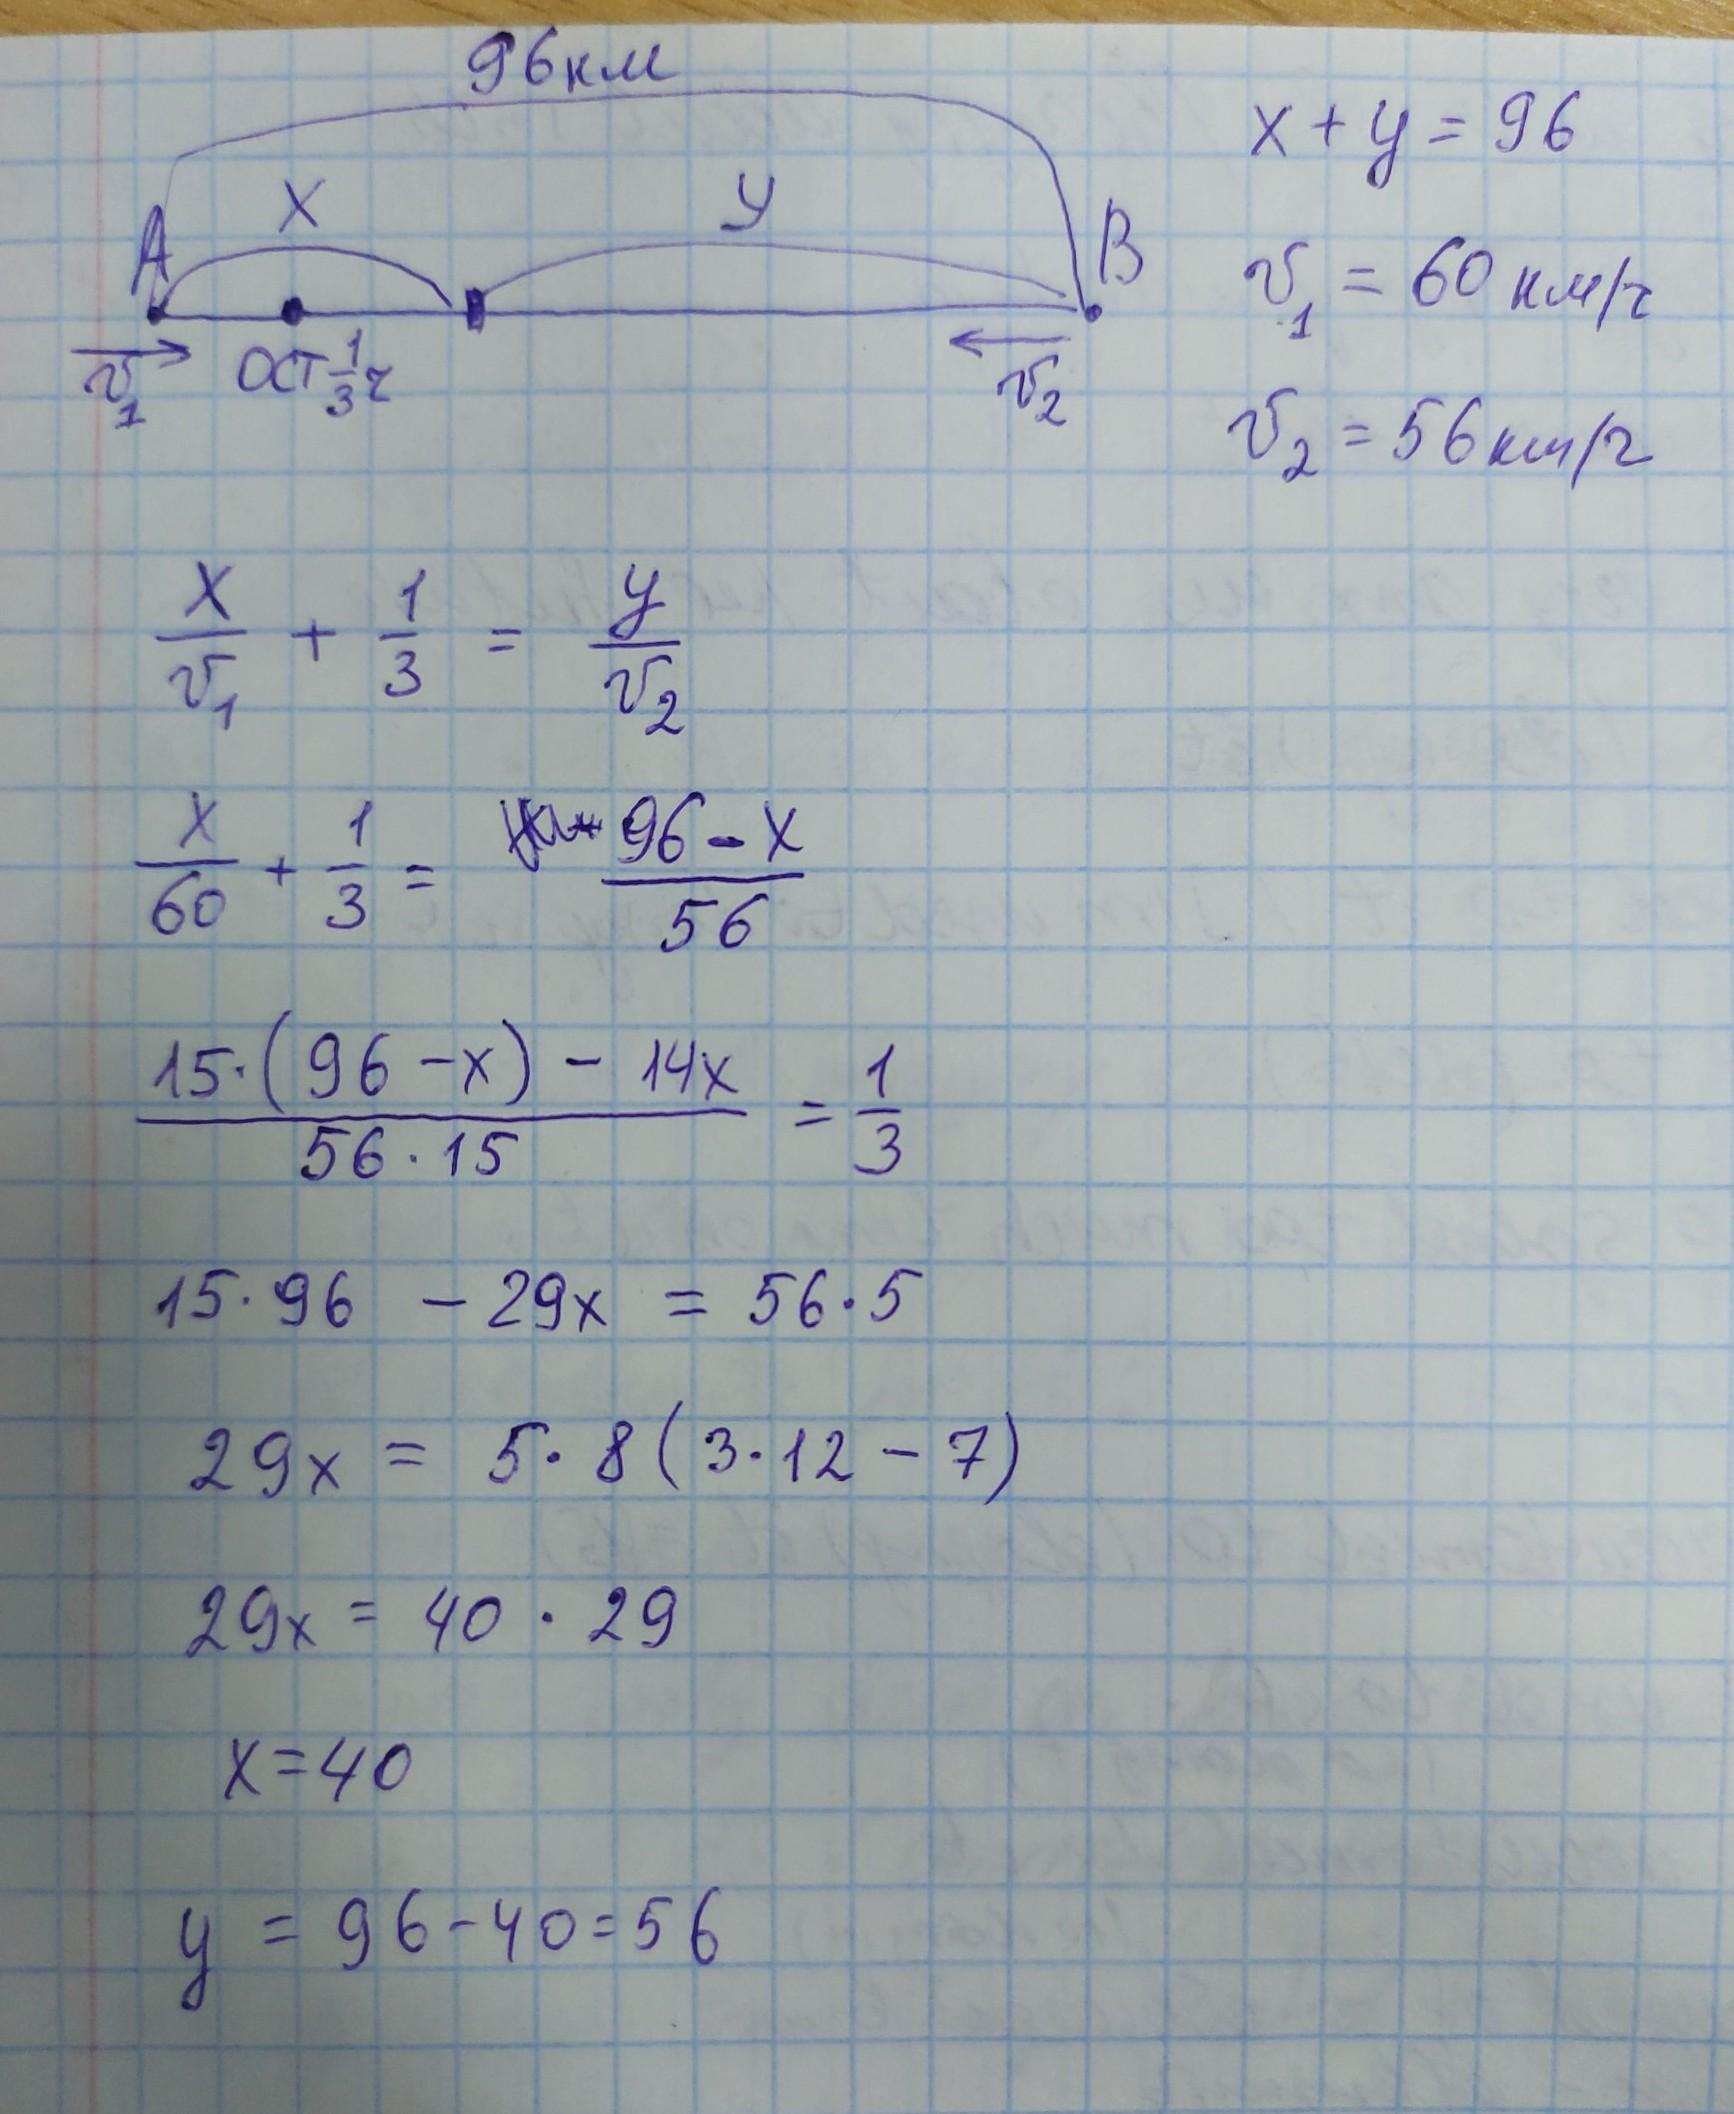 96км
x + y = 96
A x y B
v₁ = 60 км/ч
v₁ ост 1/3 ч v₂
v₂ = 56 км/ч
x/v₁ + 1/3 = y/v₂
x/60 + 1/3 = (96 - x)/56
(15·(96 - x) - 14x)/(56·15) = 1/3
15·96 - 29x = 56·5
29x = 5·8(3·12 - 7)
29x = 40·29
x = 40
y = 96 - 40 = 56